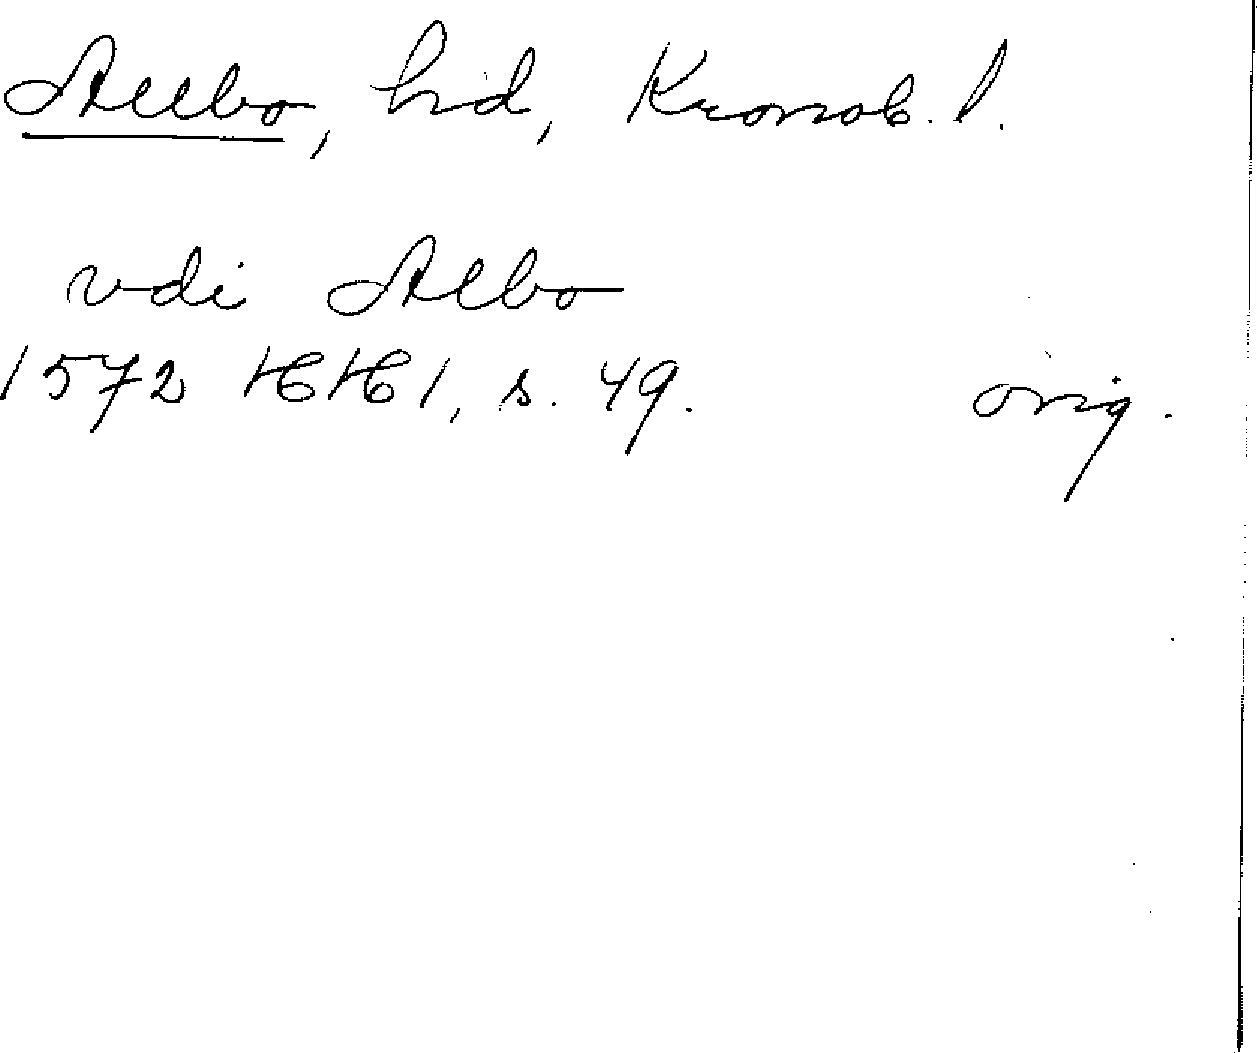 Allbo, hd, Kronob. l.
vdi Albo
1572 HH 1, s. 49. orig.